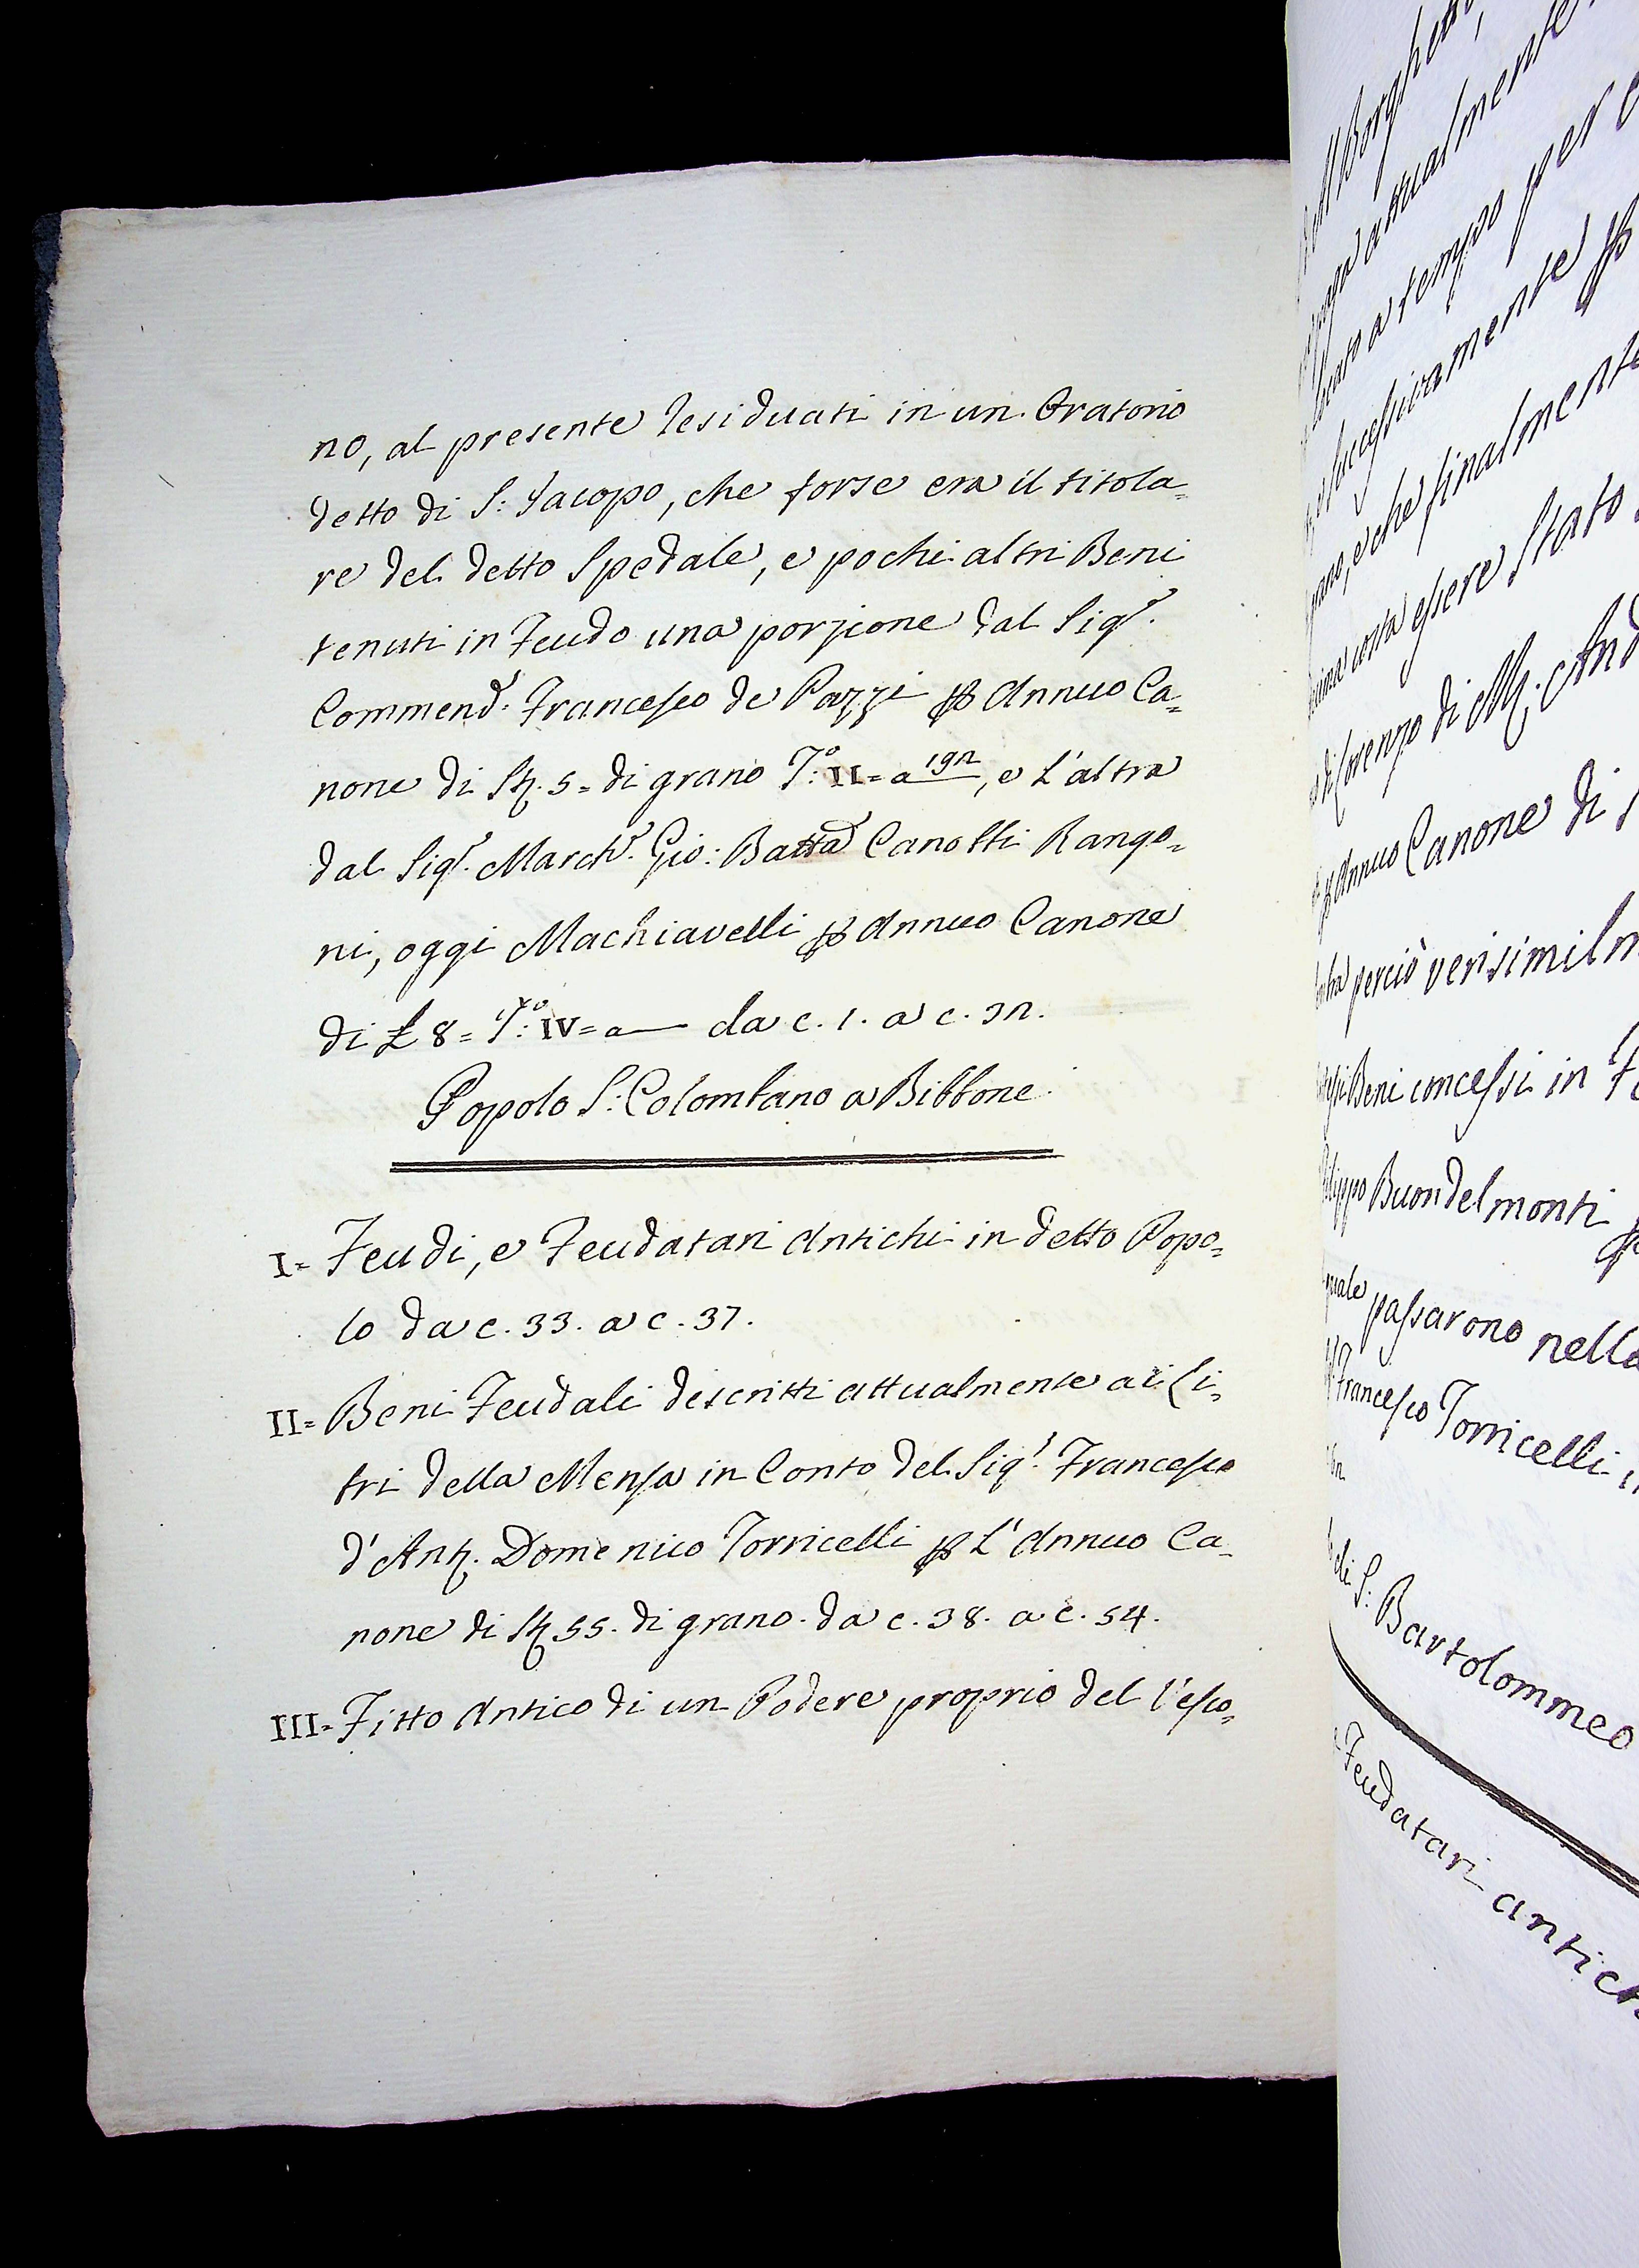 no, al presente residuati in un Oratorio
detto di S: Jacopo, che forse era il titola=
re del detto Spedale, e pochi altri Beni
tenuti in Feudo una porzione dal Sigr.
Commendr. Francesco de Pazzi p Annuo Ca=
none di St. 5= di grano T:o II= a 192, e l'altra
dal Sigr. March. Gio: Batta Canossi Rango=
ni, oggi Machiavelli p Annuo Canone
di £ 8= T:o IV= a da c. 1. a c. 32.
Popolo S: Colombano a Bibbone.
I= Feudi, e Feudatari Antichi in detto Popo=
lo da c. 33. a c. 37.
II= Beni Feudali descritti attualmente ai Li=
bri della Mensa in Conto del Sigr. Francesco
d'Ant. Domenico Torricelli p l'Annuo Ca=
none di St 55. di grano. da c. 38. a c. 54.
III= Fitto Antico di un Podere proprio del Vesco=
Borghetto,
attualmente
a tempo per
successivamente p
e che finalmente
essere Stato
di Lorenzo di M. And
Annuo Canone di
perciò verisimilm
Beni concessi in
Buondelmonti
passarono nella
Francesco Torricelli
di S: Bartolommeo
Feudatari antich